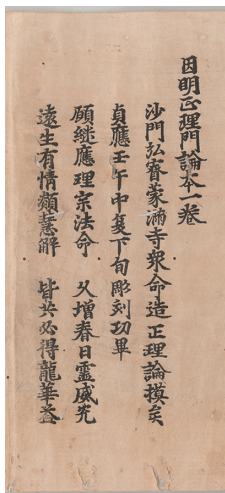 因明正理門論本一卷
沙門弘睿蒙滿寺衆命造正理論摸矣
貞應壬午中夏下旬彫刻功畢
願継應理宗法命 久増春日靈威光
遠生有情類慧解 皆共必得龍華益